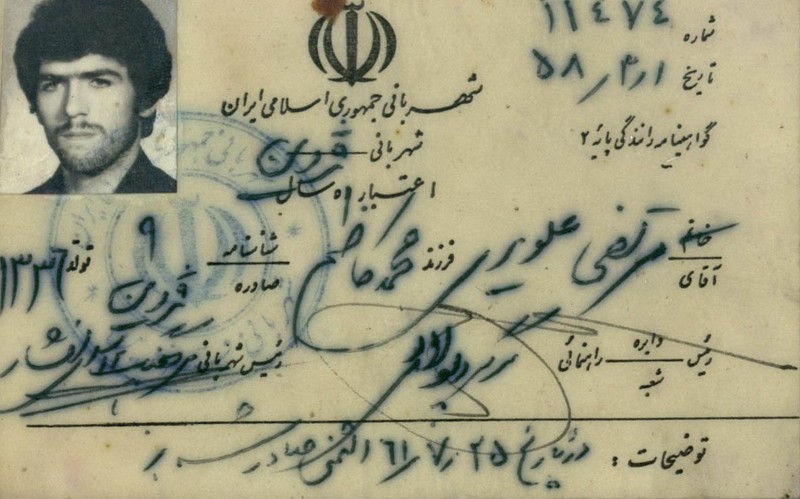 شماره ۱۱۴۷۴
تاریخ ۵۸/۳/۱
شهربانی جمهوری اسلامی ایران
گواهینامه رانندگی پایه ۲
شهربانی قزوین
اعتبار ۱۰ سال
خانم آقای مرتضی علویری فرزند محمد کاظم شناسنامه ۹ صادره قزوین تولد ۱۳۳۶
رئیس دایره شعبه راهنمائی رئیس شهربانی
توضیحات : در تاریخ ۶۱/۷/۲۵ المثنی صادر شد